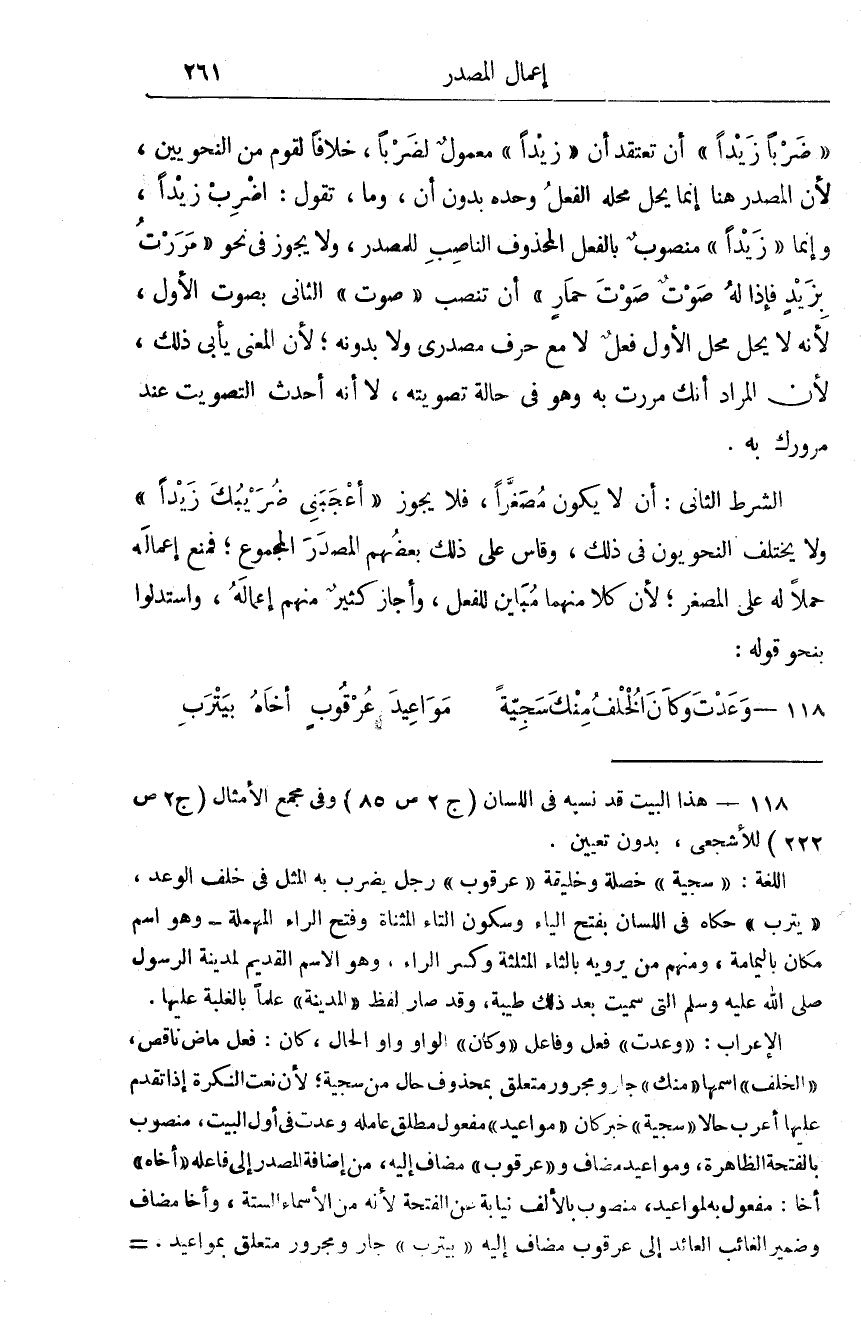 إعمال المصدر ٢٦١
« ضَرْباً زَيْداً » أن تعتقد أن « زيْداً » معمولٌ لضَرْباً ، خلافاً لقوم من النحويين ،
لأن المصدر هنا إنما يحل محله الفعلُ وحده بدون أن ، وما ، تقول : اضْرِبْ زيْداً ،
وإنما « زَيْداً » منصوبٌ بالفعل المحذوف الناصِبِ للمصدر ، ولا يجوز فى نحو « مَرَرْتُ
بِزَيْدٍ فإذا لهُ صَوْتٌ صَوْتَ حمَارٍ » أن تنصب « صوت » الثانى بصوت الأول ،
لأنه لا يحل محل الأول فعلٌ لا مع حرف مصدرى ولا بدونه ؛ لأن المعنى يأبى ذلك ،
لأن المراد أنك مررت به وهو فى حالة تصويته ، لا أنه أحدث التصويت عند
مرورك به .
الشرط الثانى : أن لا يكون مُصَغَّراً ، فلا يجوز « أعْجَبَنِى ضُرَيْبُكَ زَيْداً »
ولا يختلف النحويون فى ذلك ، وقاس على ذلك بعضُهم المصدَرَ المجموع ؛ فمنع إعمالَه
حملاً له على المصغر ؛ لأن كلا منهما مُبَاين للفعل ، وأجاز كثيرٌ منهم إعمالَهُ ، واستدلوا
بنحو قوله :
١١٨ — وَعَدْتَ وَكَانَ الْخُلْفُ مِنْكَ سَجِيَّةً مَوَاعِيدَ عُرْقُوبٍ أخَاهُ بيَتْرَبِ
١١٨ — هذا البيت قد نسبه فى اللسان ( ج ٢ ص ٨٥ ) وفى مجمع الأمثال ( ج٢ ص
٢٢٢ ) للأشجعى ، بدون تعيين .
اللغة : « سجية » خصلة وخليقة « عرقوب » رجل يضرب به المثل فى خلف الوعد ،
« يترب » حكاه فى اللسان بفتح الياء وسكون التاء المثناة وفتح الراء المهملة – وهو اسم
مكان باليمامة ، ومنهم من يرويه بالثاء المثلثة وكسر الراء ، وهو الاسم القديم لمدينة الرسول
صلى الله عليه وسلم التى سميت بعد ذلك طيبة، وقد صار لفظ «المدينة» علماً بالغلبة عليها .
الإعراب : «وعدت» فعل وفاعل «وكان» الواو واو الحال ، كان : فعل ماض ناقص،
«الخلف» اسمها «منك» جار ومجرور متعلق بمحذوف حال من سجية؛ لأن نعت النكرة إذا تقدم
عليها أعرب حالا «سجية» خبر كان «مواعيد» مفعول مطلق عامله وعدت فى أول البيت، منصوب
بالفتحة الظاهرة، ومواعيد مضاف و«عرقوب» مضاف إليه، من إضافة المصدر إلى فاعله «أخاه»
أخا : مفعول به لمواعيد، منصوب بالألف نيابة عن الفتحة لأنه من الأسماء الستة ، وأخا مضاف
وضمير الغائب العائد إلى عرقوب مضاف إليه « بيترب » جار ومجرور متعلق بمواعيد . =